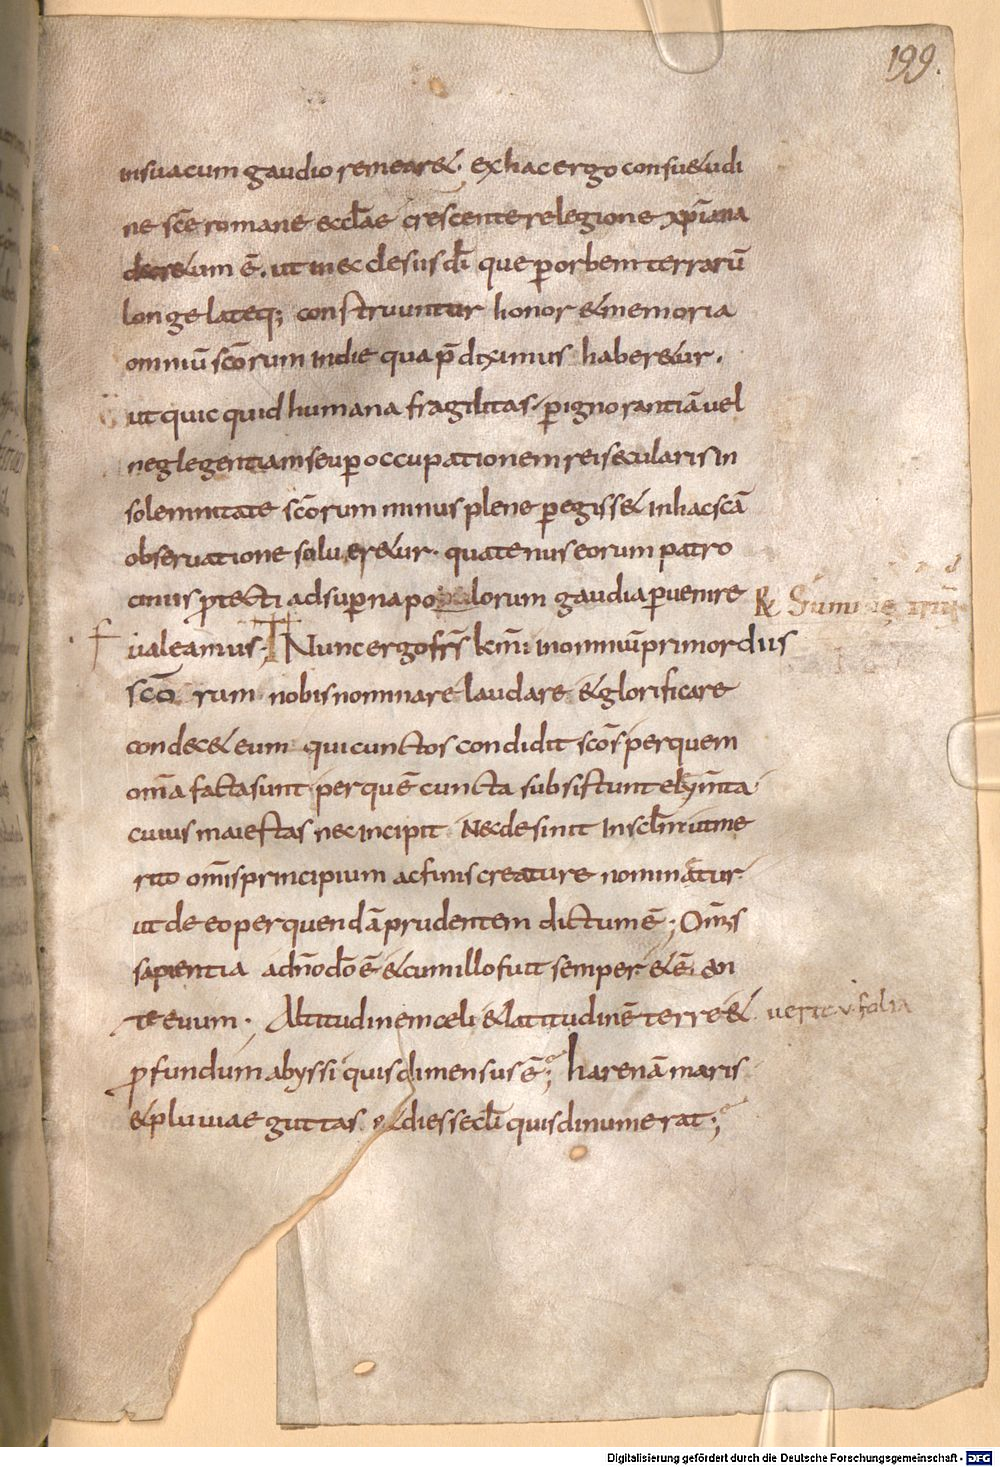 199.
insua cum gaudio remeare&. ex hac ergo consu&udi
ne sc̄e romane eccl̄ae crescente relegione xp̄iana
decr&um ē. ut in ecclesiis dī que ꝑ orbem terrarū
longe lateq; construuntur honor & memoria
omniū sc̄orum in die qua p̄diximus haber&ur.
ut quicquid humana fragilitas. ꝑ ignorantiā uel
neglegentiam seu ꝑ occupationem rei secularis in
solemnitate sc̄orum minus plene ꝑegiss& in hac sc̄a
obseruatione soluer&ur. quatenus eorum patro
ciniis ꝓtecti ad suꝑna polorum gaudia ꝑuenire
ualeamus. Nunc ergo fr̄s km̄i in omniū primordiis
sc̄orum nobis nominare laudare & glorificare
condec& eum qui cunctos condidit sc̄os per quem
om̄a facta sunt per quē cuncta subsistunt elym̄ta
cuius maiestas nec incipit Nec desinit In scl̄m ut me
rito om̄is principium ac finis creature nominatur
ut de eo per quendā prudentem dictum ē; Om̄s
sapientia a dn̄o dō ē & cum illo fuit semper & ē an
te euum. Altitudinem celi & latitudinē terre &
ꝓfundum abyssi quis dimensus ē; harenā maris
& pluuiae guttas & dies secl̄i quis dinumerat;
R Summe
uerte v folia